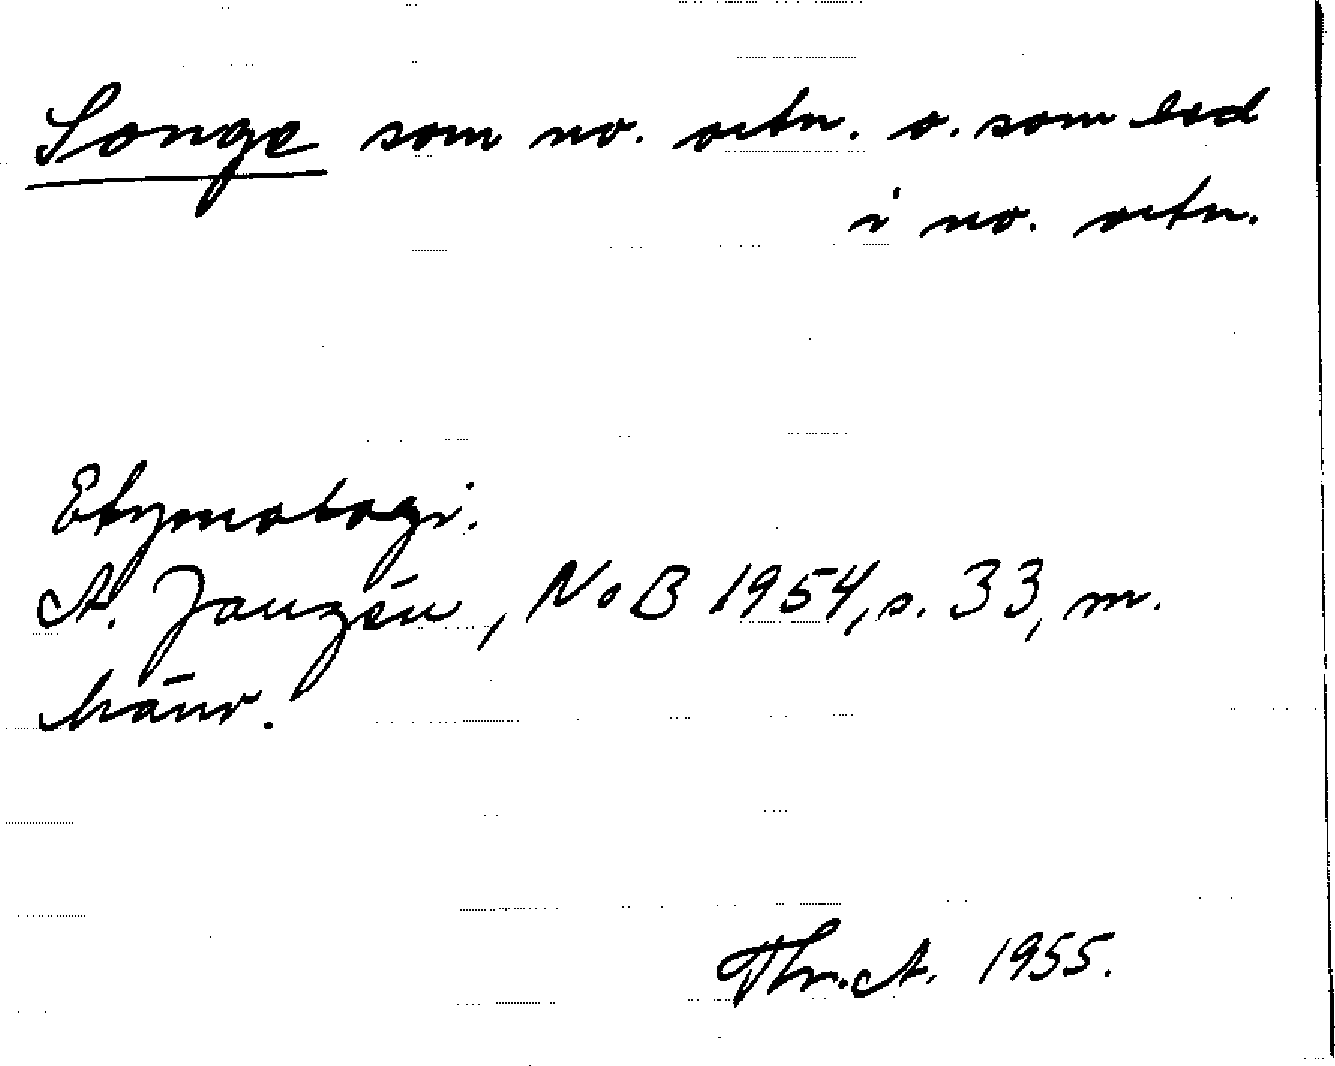 Songe som no. ortn. o. som led
i no. ortn.
Etymologi.
A. Janzén, NoB 1954, s. 33, m.
hänv.
Thr.A. 1955.